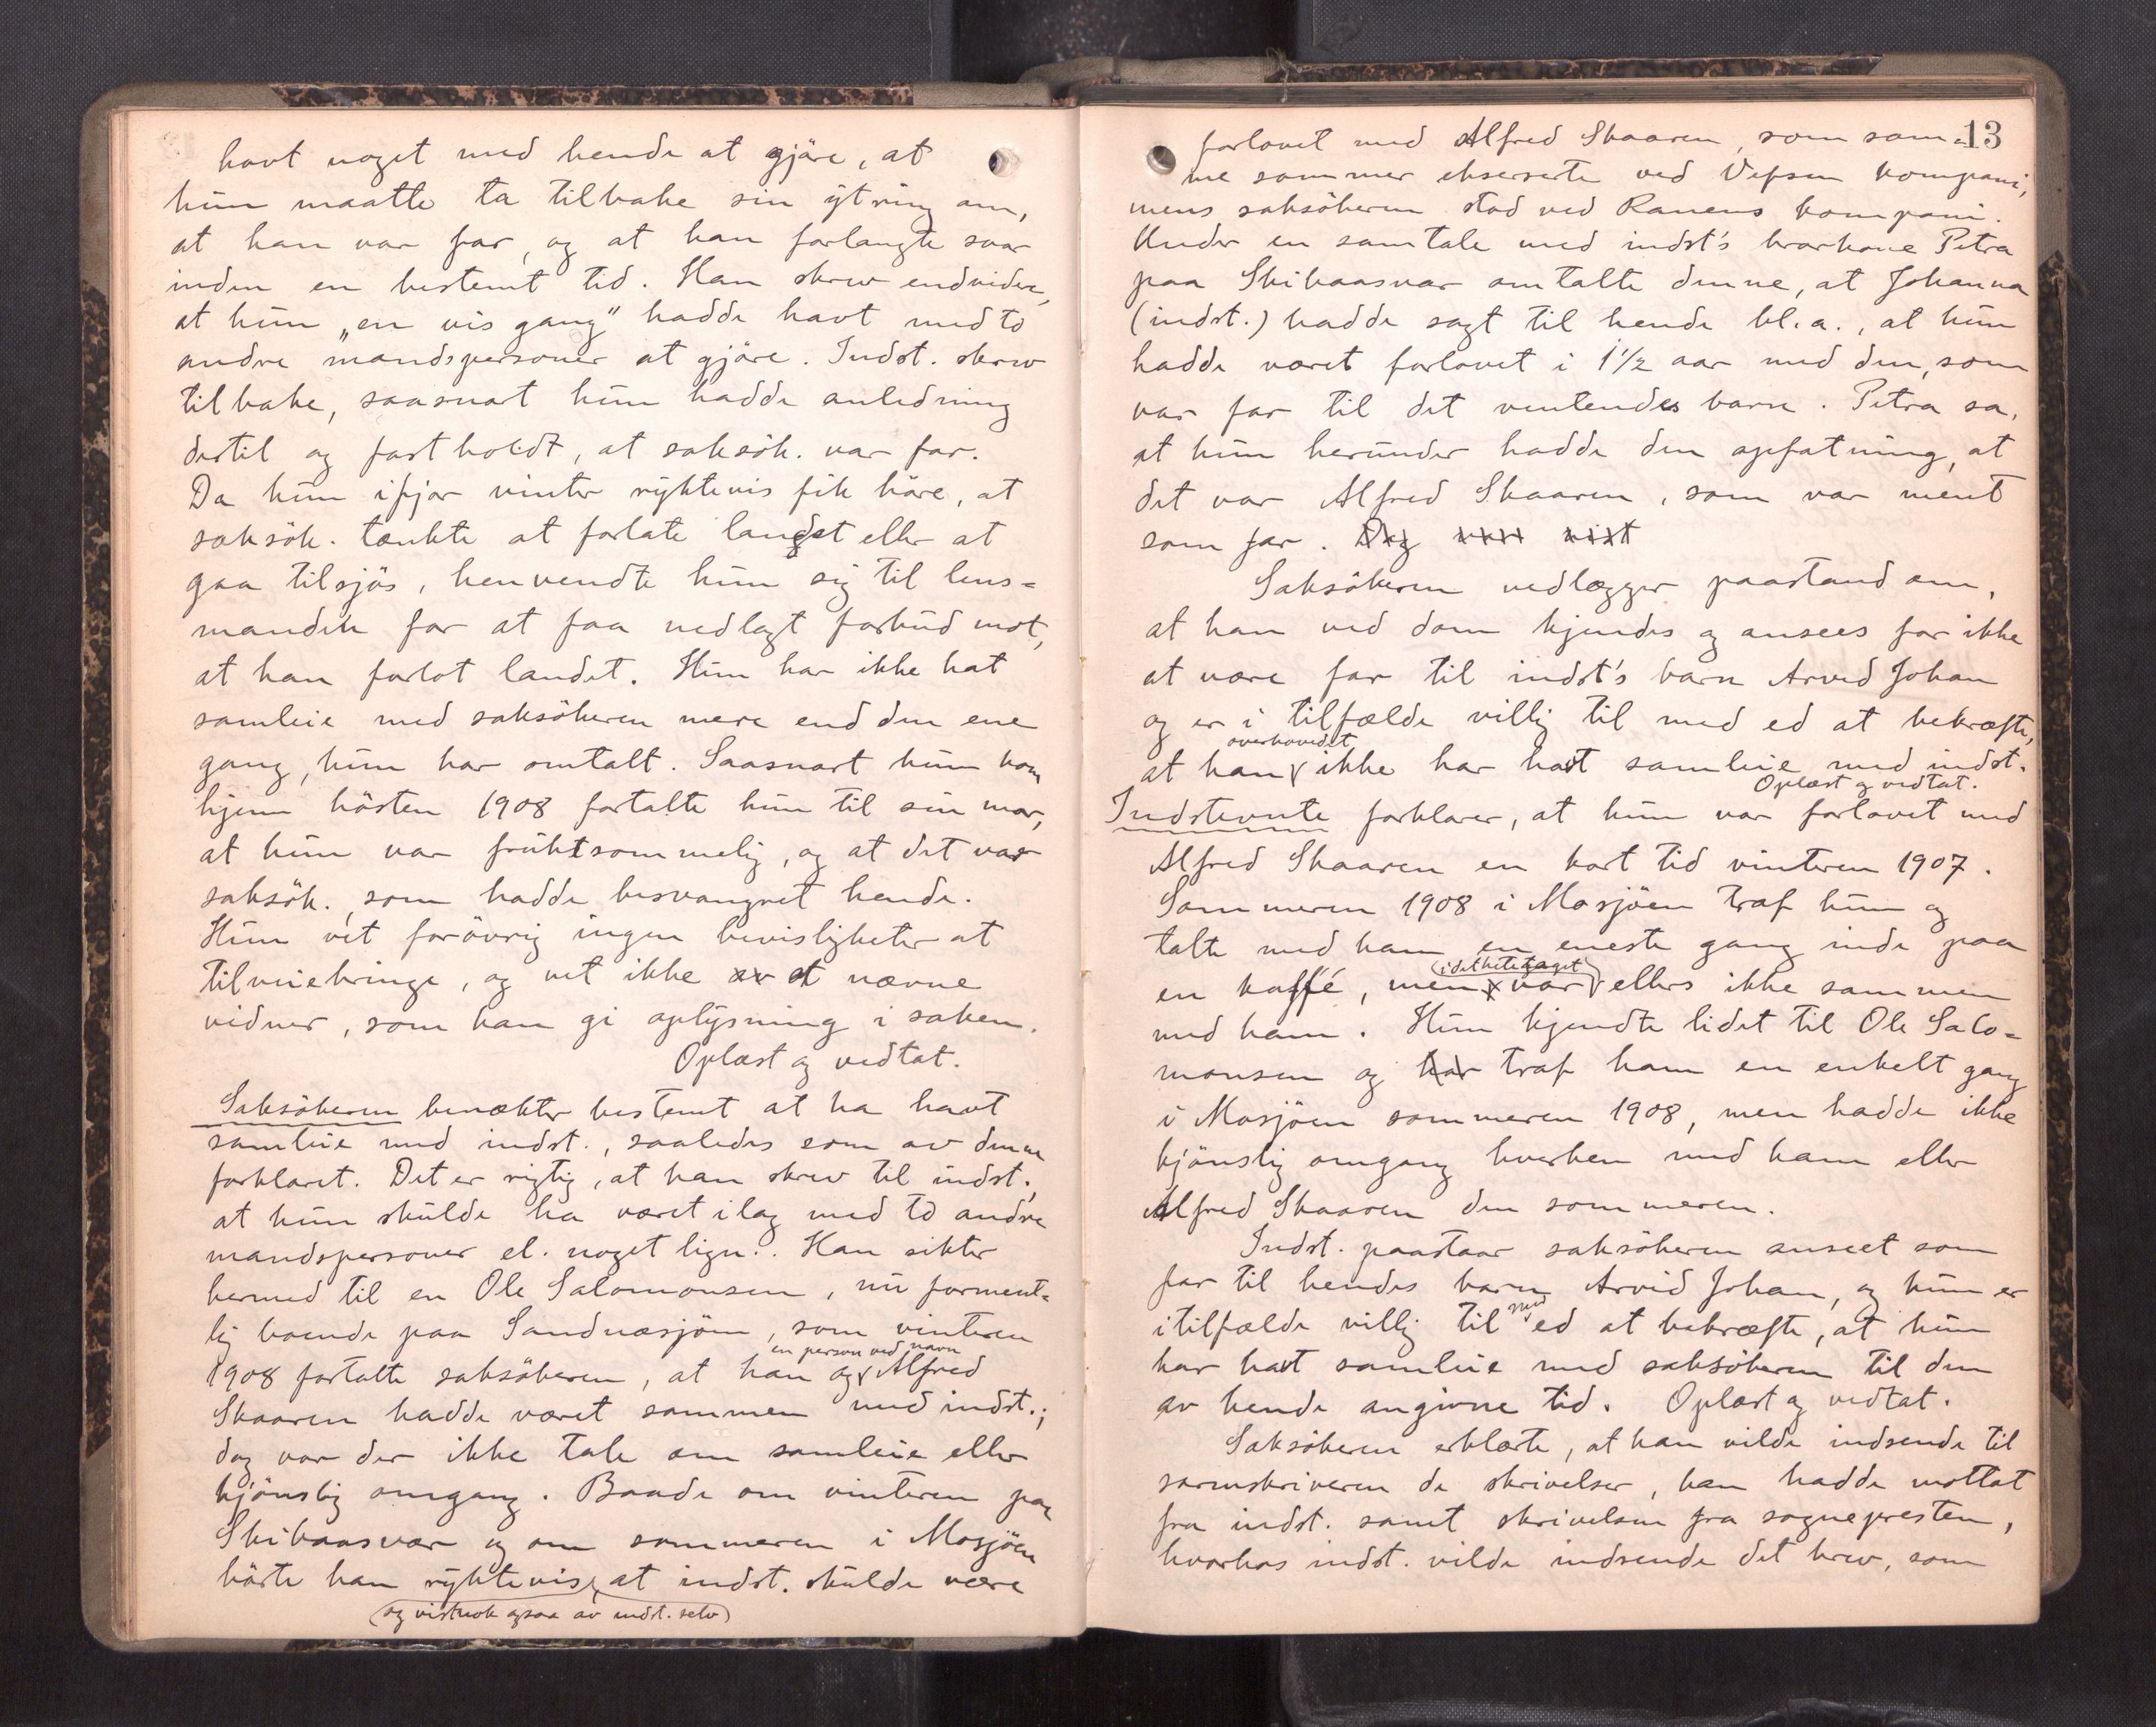 havt noget med hende at gjöre, at
hun maatte ta tilbake sin ytring om,
at han var far, og at han forlangte svar
inden en bestemt tid. Han skrev endvidere,
at hun „en vis gang" hadde havt med to
andre mandspersoner at gjöre. Indst. skrev
tilbake, saasnart hun hadde anledning
dertil og fastholdt, at saksök. var far.
Da hun ifjor vinter ryktevis fik höre, at
saksök. tænkte at forlate landet eller at
gaa tilsjös, henvendte hun sig til lens=
manden for at faa nedlagt forbud mot,
at han forlot landet. Hun har ikke hat
samleie med saksökeren mere end den ene
gang, hun har omtalt. Saasnart hun kom
hjem hösten 1908 fortalte hun til sin mor,
at hun var fruktsommelig, og at det var
saksök., som hadde besvangret hende.
Hun vet forövrig ingen bevisligheter at
tilveiebringe, og vet ikke at nævne
vidner, som kan gi oplysning i saken.
Oplæst og vedtat.
Saksökeren benækter bestemt at ha havt
samleie med indst., saaledes som av denne
forklaret. Det er rigtig, at han skrev til indst.,
at hun skulde ha været ilag med to andre
mandspersoner el. noget lign.. Han sikter
hermed til en Ole Salomonsen, nu forment=
lig boende paa Sandnæsjöen, som vinteren
en person ved navn
1908 fortalte saksökeren, at han og Alfred
Skaaren hadde været sammen med indst.;
dog var der ikke tale om samleie eller
kjönslig omgang. Baade om vinteren paa
Skibaasvær og om sommeren i Mosjöen
hörte han ryktevis, at indst. skulde være
(og vistnok ogsaa av indst. selv)
13
forlovet med Alfred Skaaren, som sam=
me sommer ekserserte ved Vefsen kompani,
mens saksökeren stod ved Ranens kompani.
Under en samtale med indst's brorkone Petra
paa Skibaasvær omtalte denne, at Johanna
(indst.) hadde sagt til hende bl.a., at hun
hadde været forlovet i 1½ aar med den, som
var far til det ventendes barn. Petra sa,
at hun herunder hadde den opfatning, at
det var Alfred Skaaren, som var ment
som far.
Saksökeren nedlægger paastand om,
at han ved dom kjendes og ansees for ikke
at være far til indst's barn Arvid Johan
og er i tilfælde villig til med ed at bekræfte,
overhovedet
at han ikke har hat samleie med indst.
Oplæst og vedtat.
Indstevnte forklarer, at hun var forlovet med
Alfred Skaaren en kort tid vinteren 1907.
Sommeren 1908 i Mosjöen traf hun og
talte med ham en eneste gang inde paa
(idethetetaget)
en kaffé, men var ellers ikke sammen
med ham. Hun kjendte lidet til Ole Salo=
monsen og traf ham en enkelt gang
i Mosjöen sommeren 1908, men hadde ikke
kjönslig omgang hverken med ham eller
Alfred Skaaren den sommeren.
Indst. paastaar saksökeren anseet som
far til hendes barn Arvid Johan, og hun er
med
itilfælde villig til ed at bekræfte, at hun
har hat samleie med saksökeren til den
av hende angivne tid. Oplæst og vedtat.
Saksökeren erklærte, at han vilde indsende til
sorenskriveren de skrivelser, han hadde mottat
fra indst. samt skrivelsen fra sognepresten,
hvorhos indst. vilde indsende det brev, som